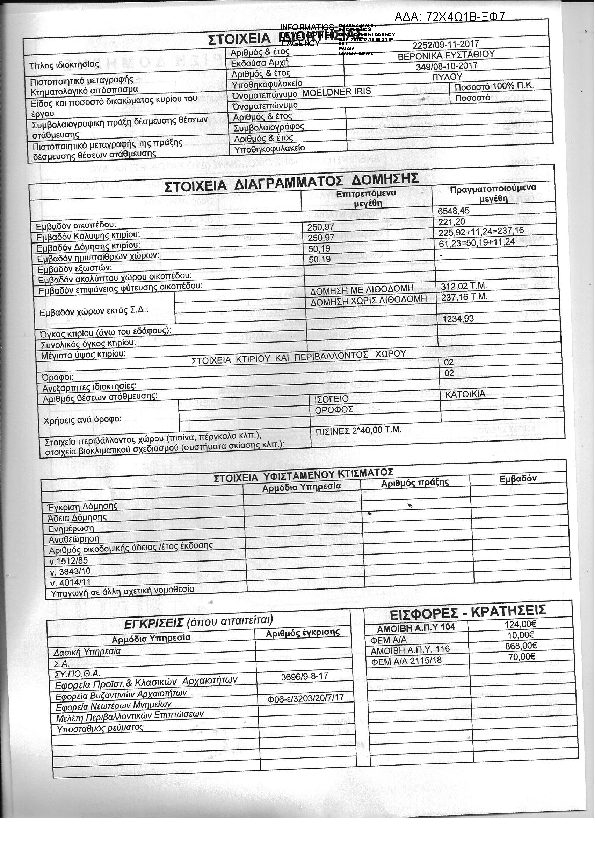 ΑΔΑ: 72Χ4Ω1Β-ΞΦ7
INFORMATICS
AGENCY
ΣΤΟΙΧΕΙΑ
Τίτλος ιδιοκτησίας Αριθμός & έτος 2252/09-11-2017
Εκδούσα Αρχή ΒΕΡΟΝΙΚΑ ΕΥΣΤΑΘΙΟΥ
Πιστοποιητικό μεταγραφής Αριθμός & έτος 349/08-10-2017
Κτηματολογικό απόσπασμα Υποθηκοφυλακείο ΠΥΛΟΥ
Είδος και ποσοστό δικαιώματος κυρίου του έργου Ονοματεπώνυμο MOELDNER IRIS Ποσοστό 100% Π.Κ.
Ονοματεπώνυμο Ποσοστό
Συμβολαιογραφική πράξη δέσμευσης θέσεων στάθμευσης Αριθμός & έτος
Συμβολαιογράφος
Πιστοποιητικό μεταγραφής της πράξης δέσμευσης θέσεων στάθμευσης Αριθμός & έτος
Υποθηκοφυλακείο
ΣΤΟΙΧΕΙΑ ΔΙΑΓΡΑΜΜΑΤΟΣ ΔΟΜΗΣΗΣ
Επιτρεπόμενα μεγέθη Πραγματοποιούμενα μεγέθη
Εμβαδόν οικοπέδου: 6548,45
Εμβαδόν Κάλυψης κτιρίου: 250,97 221,20
Εμβαδόν Δόμησης κτιρίου: 250,97 225,92+11,24=237,16
Εμβαδόν ημιυπαίθριων χώρων: 50,19 61,23=50,19+11,24
Εμβαδόν εξωστών: 50,19 -
Εμβαδόν ακαλύπτου χώρου οικοπέδου:
Εμβαδόν επιφάνειας φύτευσης οικοπέδου:
Εμβαδόν χώρων εκτός Σ.Δ.: ΔΟΜΗΣΗ ΜΕ ΛΙΘΟΔΟΜΗ 312,02 Τ.Μ.
ΔΟΜΗΣΗ ΧΩΡΙΣ ΛΙΘΟΔΟΜΗ 237,16 Τ.Μ.
Όγκος κτιρίου (άνω του εδάφους): 1234,93
Συνολικός όγκος κτιρίου:
Μέγιστο ύψος κτιρίου:
ΣΤΟΙΧΕΙΑ ΚΤΙΡΙΟΥ ΚΑΙ ΠΕΡΙΒΑΛΛΟΝΤΟΣ ΧΩΡΟΥ
Όροφοι: 02
Ανεξάρτητες ιδιοκτησίες: 02
Αριθμός θέσεων στάθμευσης:
Χρήσεις ανά όροφο: ΙΣΟΓΕΙΟ ΚΑΤΟΙΚΙΑ
ΟΡΟΦΟΣ
Στοιχεία περιβάλλοντος χώρου (πισίνα, πέργκολα κλπ.), στοιχεία βιοκλιματικού σχεδιασμού (συστήματα σκίασης κλπ.): ΠΙΣΙΝΕΣ 2*40,00 Τ.Μ.
ΣΤΟΙΧΕΙΑ ΥΦΙΣΤΑΜΕΝΟΥ ΚΤΙΣΜΑΤΟΣ
Αρμόδια Υπηρεσία Αριθμός πράξης Εμβαδόν
Έγκριση Δόμησης
Άδεια Δόμησης
Ενημέρωση
Αναθεώρηση
Αριθμός οικοδομικής άδειας /έτος έκδοσης
ν.1512/85
ν. 3843/10
ν. 4014/11
Υπαγωγή σε άλλη σχετική νομοθεσία
ΕΓΚΡΙΣΕΙΣ (όπου απαιτείται)
Αρμόδια Υπηρεσία Αριθμός έγκρισης
Δασική Υπηρεσία
Σ.Α.
ΣΥ.ΠΟ.Θ.Α.
Εφορεία Προϊστ.& Κλασικών Αρχαιοτήτων 3696/9-8-17
Εφορεία Βυζαντινών Αρχαιοτήτων
Εφορεία Νεωτέρων Μνημείων Φ06-ε/3203/20/7/17
Μελέτη Περιβαλλοντικών Επιπτώσεων
Υποσταθμός ρεύματος
ΕΙΣΦΟΡΕΣ - ΚΡΑΤΗΣΕΙΣ
ΑΜΟΙΒΗ Α.Π.Υ 104 124,00€
ΦΕΜ Α/Α 10,00€
ΑΜΟΙΒΗ Α.Π.Υ. 116 868,00€
ΦΕΜ Α/Α 2115/18 70,00€